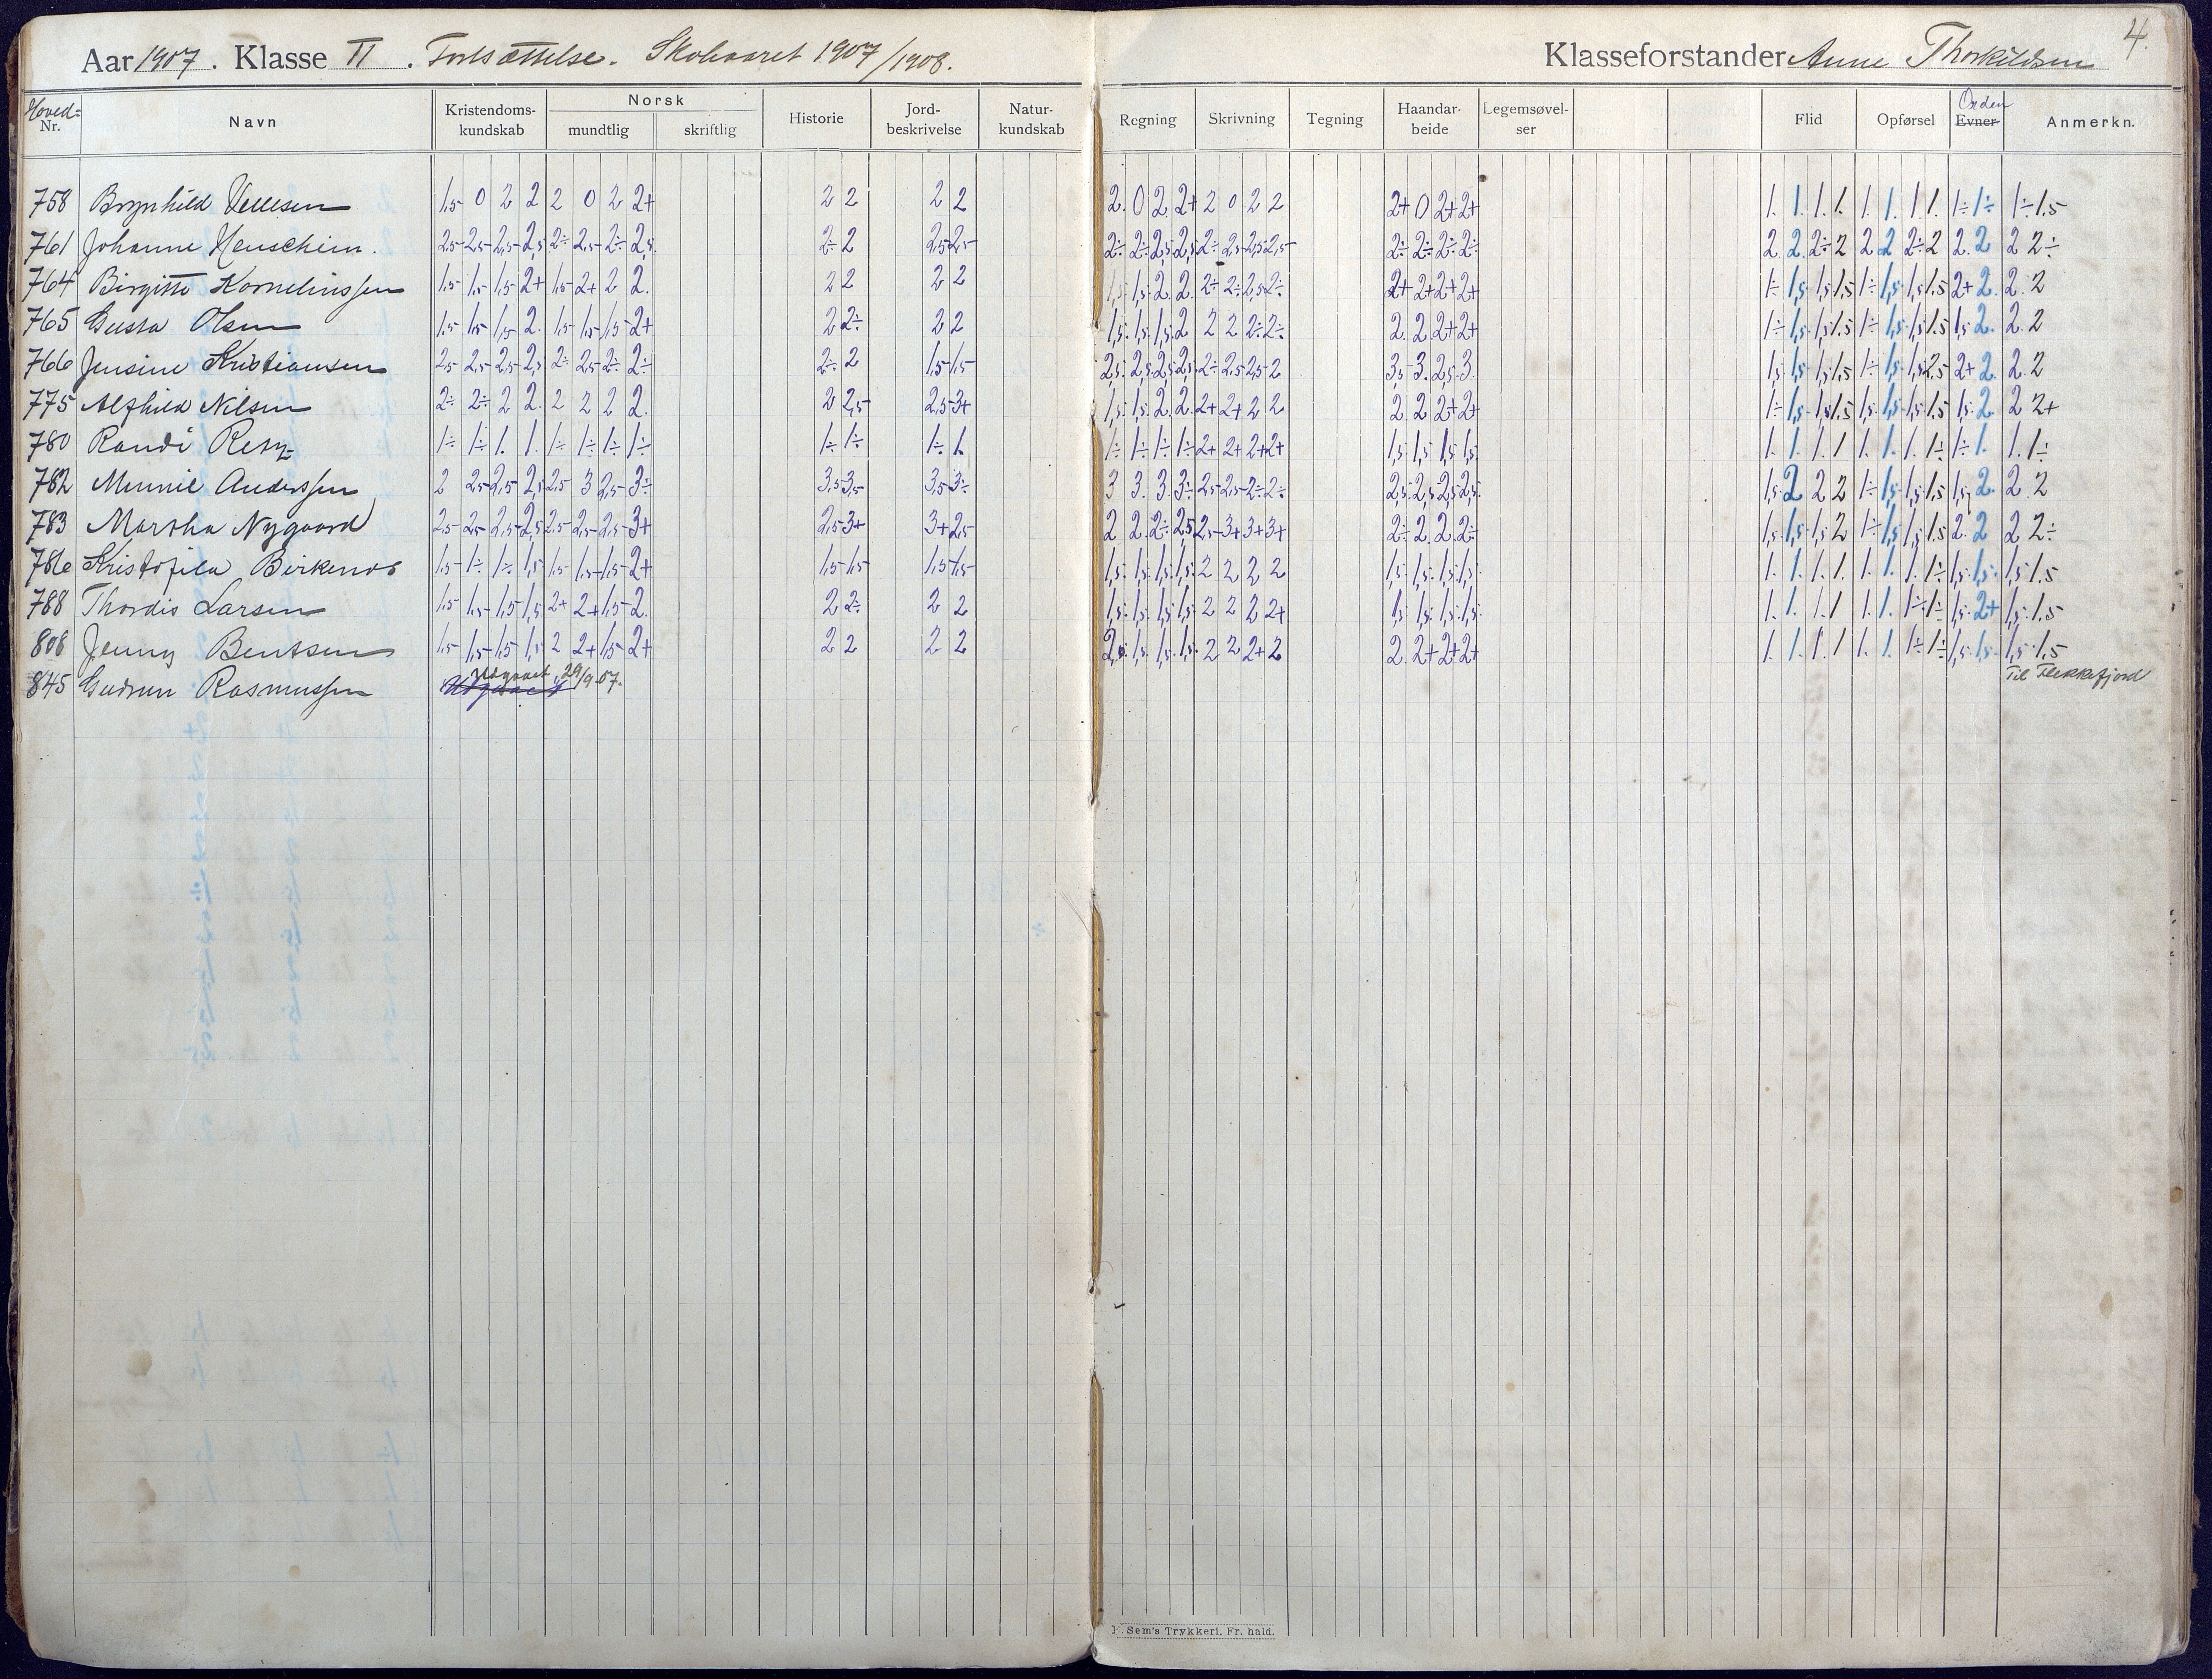 4.
Aar 1907. Klasse II. Fortsættelse. Skoleaaret 1907/1908. Klasseforstander Anne Thorkildsen
Hoved= Nr. Navn Kristendoms-kundskab Norsk mundtlig skriftlig Historie Jord-beskrivelse Natur-kundskab Regning Skrivning Tegning Haandar-beide Legemsøvel-ser Flid Opførsel Orden Evner Anmerkn.
758 Brynhild 1,5 0 2 2 2 0 2 2+ 2 2 2 2 2. 0 2 2+ 2 0 2 2 2+ 0 2+ 2+ 1. 1. 1. 1. 1. 1. 1. 1. 1÷ 1÷ 1÷ 1.5
761 Johanne 2,5 2,5 2,5 2,5 2÷ 2,5 2÷ 2,5 2÷ 2 2,5 2,5 2÷ 2÷ 2,5 2,5 2÷ 2,5 2,5 2,5 2÷ 2÷ 2÷ 2÷ 2. 2. 2÷ 2 2 2 2÷ 2 2. 2 2 2÷
764 Birgitte Kornelinssen 1,5 1,5 1,5 2+ 1,5 2+ 2 2. 2 2 2 2 1,5 1,5 2. 2. 2÷ 2÷ 2,5 2÷ 2+ 2+ 2+ 2+ 1÷ 1,5 1,5 1.5 1÷ 1,5 1,5 1.5 2+ 2. 2. 2
765 Gusta Olsen 1,5 1,5 1,5 2. 1,5 1,5 1,5 2+ 2 2÷ 2 2 1,5 1,5 1,5 2 2 2 2÷ 2÷ 2. 2. 2+ 2+ 1÷ 1,5 1,5 1.5 1÷ 1,5 1,5 1.5 1,5 2. 2. 2
766 Jensine Kristiansen 2,5 2,5 2,5 2,5 2÷ 2,5 2÷ 2÷ 2÷ 2 1,5 1,5 2,5 2,5 2,5 2,5 2÷ 2,5 2,5 2 3,5 3. 2,5 3. 1,5 1,5 1,5 1,5 1÷ 1,5 1,5 2.5 2+ 2. 2. 2
775 Alfhild Nilsen 2÷ 2÷ 2 2. 2 2 2 2. 2 2,5 2,5 3+ 1,5 1,5 2. 2. 2+ 2+ 2 2 2. 2 2+ 2+ 1÷ 1,5 1,5 1.5 1,5 1,5 1,5 1.5 1,5 2. 2 2+
780 Randi 1÷ 1÷ 1. 1. 1÷ 1÷ 1÷ 1÷ 1÷ 1÷ 1÷ 1. 1÷ 1÷ 1÷ 1÷ 2+ 2+ 2+ 2+ 1,5 1,5 1,5 1,5 1. 1. 1. 1 1. 1. 1. 1÷ 1÷ 1. 1. 1÷
782 Minnie Anderssen 2 2,5 2,5 2,5 2,5 3 2,5 3÷ 3,5 3,5 3,5 3÷ 3 3. 3. 3÷ 2,5 2,5 2÷ 2÷ 2,5 2,5 2,5 2,5 1,5 2 2 2 1÷ 1,5 1,5 1.5 1,5 2. 2. 2
783 Martha Nygaard 2,5 2,5 2,5 2,5 2,5 2,5 2,5 3+ 2,5 3+ 3+ 2,5 2 2. 2÷ 2,5 2,5 3+ 3+ 3+ 2÷ 2. 2. 2÷ 1,5 1,5 1,5 2 1÷ 1,5 1,5 1.5 2. 2 2 2÷
786 Kristofila Birkenos 1,5 1÷ 1÷ 1,5 1,5 1,5 1,5 2+ 1,5 1,5 1,5 1,5 1,5 1,5 1,5 1,5 2 2 2 2 1,5 1,5 1,5 1,5 1. 1. 1. 1. 1. 1. 1. 1÷ 1,5 1,5 1,5 1.5
788 Thordis Larsen 1,5 1,5 1,5 1,5 2+ 2+ 1,5 2. 2 2÷ 2 2 1,5 1,5 1,5 1,5 2 2 2 2+ 1,5 1,5 1,5 1,5 1. 1. 1. 1 1. 1. 1÷ 1÷ 1,5 2+ 1,5 1.5
808 Jenny Bentsen 1,5 1,5 1,5 1,5 2 2+ 1,5 2+ 2 2 2 2 2. 1,5 1,5 1,5 2 2 2+ 2 2. 2+ 2+ 2+ 1. 1. 1. 1 1. 1. 1÷ 1÷ 1,5 1,5 1,5 1.5
845 Gudrun Rasmussen Udgaaet 29/9 07. Til Flekkefjord
F. Sem's Trykkeri, Fr. hald.